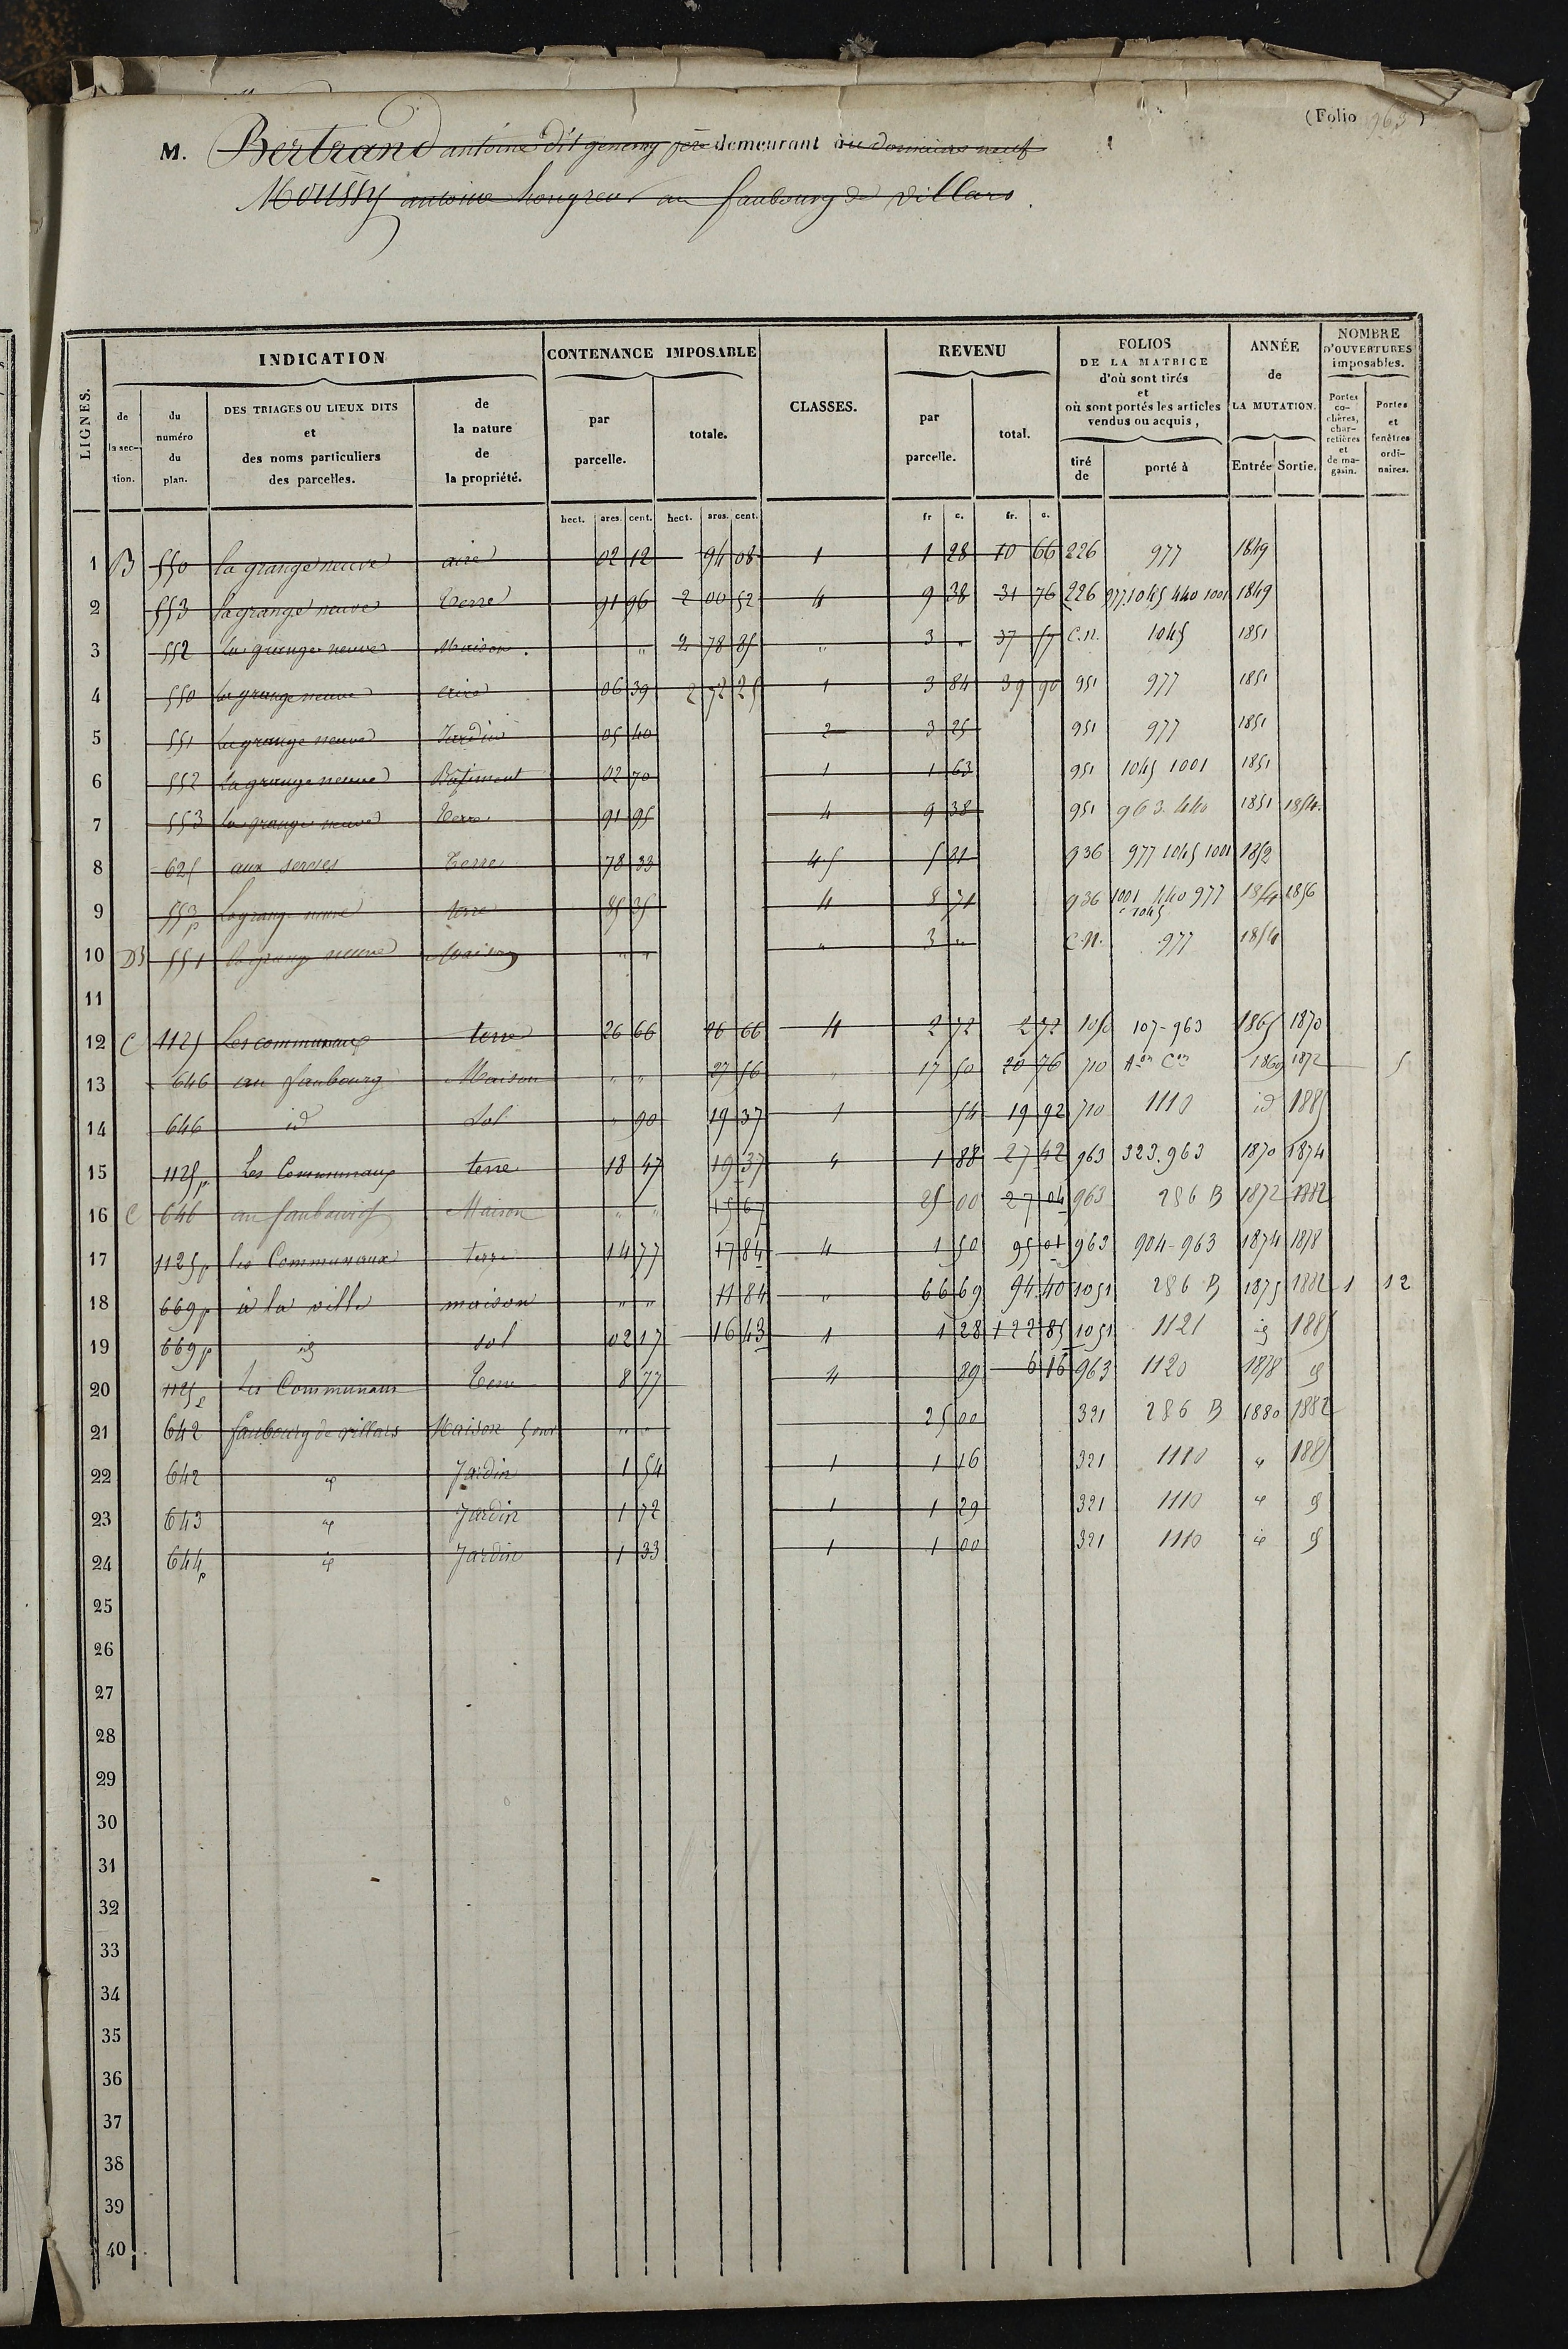 (Folio 963)
M. Bertrand antoine dit genemy père demeurant au domaine neuf
Moussy antoine hongreur au faubourg de Villars
LIGNES. INDICATION CONTENANCE IMPOSABLE CLASSES. REVENU FOLIOS DE LA MATRICE d'où sont tirés et où sont portés les articles vendus ou acquis, ANNÉE de LA MUTATION. NOMBRE D'OUVERTURES imposables.
de la section. du numéro du plan. DES TRIAGES OU LIEUX DITS et des noms particuliers des parcelles. de la nature de la propriété. par parcelle. totale. par parcelle. total. tiré de porté à Entrée Sortie. Portes cochères, charretières et de magasin. Portes et fenêtres ordinaires.
hect. ares. cent. hect. ares. cent. fr c. fr. c.
1 B 550 la grange neuve aire 02 12 94 08 1 1 28 10 66 226 977 1849
2 553 la grange neuve terre 91 96 2 00 52 4 9 38 31 76 226 977 1045 440 1001 1849
3 552 la grange neuve Maison. " 2 78 85 " 3 " 37 57 C.N. 1045 1851
4 550 la grange neuve aire 06 39 2 72 25 1 3 84 39 90 951 977 1851
5 551 la grange neuve Jardin 05 40 2 3 25 951 977 1851
6 552 la grange neuve Bâtiment 02 70 1 1 63 951 1045 1001 1851
7 553 la grange neuve terre 91 95 4 9 38 951 963. 440 1851 1854.
8 625 aux terre 78 33 4 5 5 81 936 977 1045 1001 1852
9 553p la grange neuve terre 85 35 4 8 71 936 1001 440 977 1045 1854 1856
10 B 551 la grange neuve Maison " " " 3 " C.N. 977 1854
11
12 C 1125 Les communaux terre 26 66 26 66 4 2 72 2 72 1050 107-963 1865 1870
13 646 au faubourg Maison " " 27 56 " 17 50 20 76 710 Aon Con 1869 1872 5
14 646 id Sol " 90 19 37 1 54 19 92 710 1110 id 1885
15 1125p Les Communaux terre 18 47 19 37 4 1 88 27 42 963 323.963 1870 1874
16 C 646 au faubourg Maison " " 15 67 25 00 27 04 963 286 B 1872 1882
17 1125p les Communaux terre 14 77 17 84 4 1 50 95 01 963 904-963 1874 1878
18 669p à la ville maison " " 11 84 " 66 69 94 40 1051 286 B 1875 1882 1 12
19 669p id sol 02 17 16 43 1 1 28 122 85 1051 1121 id 1885
20 1125p Les Communaux Terre 8 77 4 89 6 16 963 1120 1878 id
21 642 faubourg de villars Maison 5 ouv " " 25 00 321 286 B 1880 1882
22 642 id Jardin 1 54 1 1 16 321 1110 id 1885
23 643 id Jardin 1 72 1 1 29 321 1110 id id
24 644p id Jardin 1 33 1 1 00 321 1110 id id
25
26
27
28
29
30
31
32
33
34
35
36
37
38
39
40